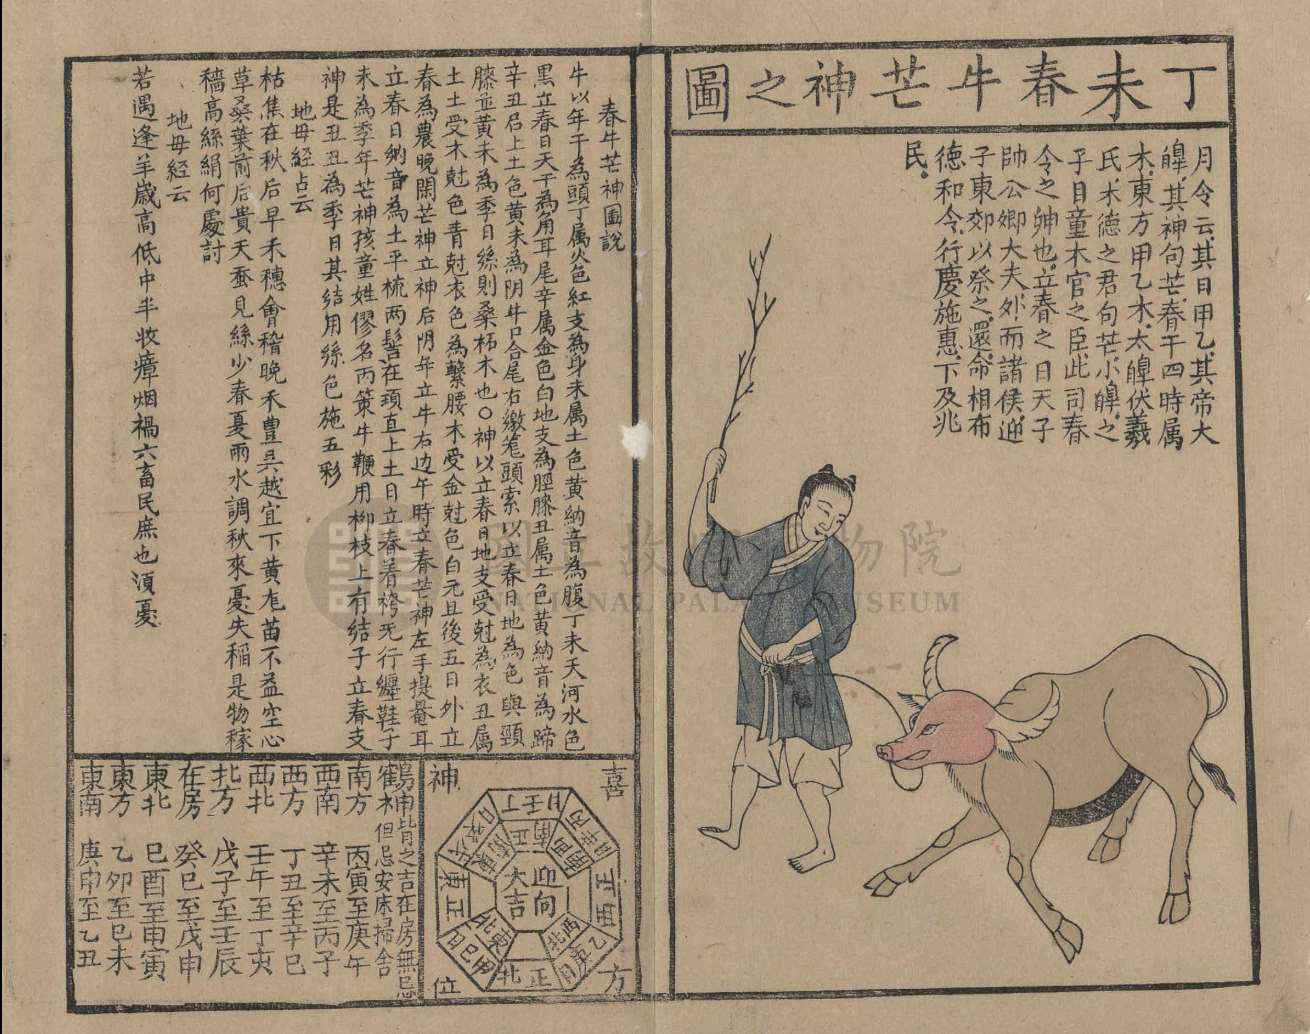 丁未春牛芒神之圖
月令云其日甲乙其帝大
皡其神句芒春于四時属
木東方甲乙木太皡伏羲
氏木德之君句芒小皡之
子目童木官之臣此司春
令之神也立春之日天子
帥公卿大夫外而諸侯迎
子東郊以祭之還命相布
德和令行慶施惠下及兆
民
春牛芒神圖説
牛以年干為頭丁属火色紅支為身未属土色黄納音為腹丁未天河水色
黒立春日天干為角耳尾辛属金色白地支為脛膝丑属土色黄納音為蹄
辛丑居上土色黄未為阴牛口合尾右繳笼頭索以立春日地為色與頸
膝並黄未為季日絲則桑柘木也○神以立春日地支受尅為衣丑属
土土受木尅色青尅衣色為繫腰木受金尅色白元旦後五日外立
春為農晚閑芒神立神后阴年立牛右边午時立春芒神左手提罨耳
立春日納音為土平梳两髻在頂直上土日立春着袴旡行纒鞋子
未為季年芒神孩童姓僇名丙策牛鞭用柳枝上有结子立春支
神是丑丑為季日其结用絲色施五彩
地母經占云
枯焦在秋后早禾穗會稽晚禾豊吴越宜下黄虍苗不益空心
草桑葉前后貴天蚕見絲少春夏雨水調秋來憂失稲是物稼
穡高絲絹何處討
地母經云
若遇逢羊歳高低中半收瘴烟禍六畜民庶也湏憂
喜
神
方
位
迎向
大吉
正南
西南
正西
西北
正北
東北
正東
東南
丁壬日
丙辛日
乙庚日
甲己日
戊癸日
鶴神皆之吉在房無忌
鶴木但忌安床掃舍
南方 丙寅至庚午
西南 辛未至丙子
西方 丁丑至辛巳
西北 壬午至丁亥
北方 戊子至壬辰
在房 癸巳至戊申
東北 巳酉至甲寅
東方 乙卯至巳未
東南 庚申至乙丑
國立故宮博物院
NATIONAL PALACE MUSEUM